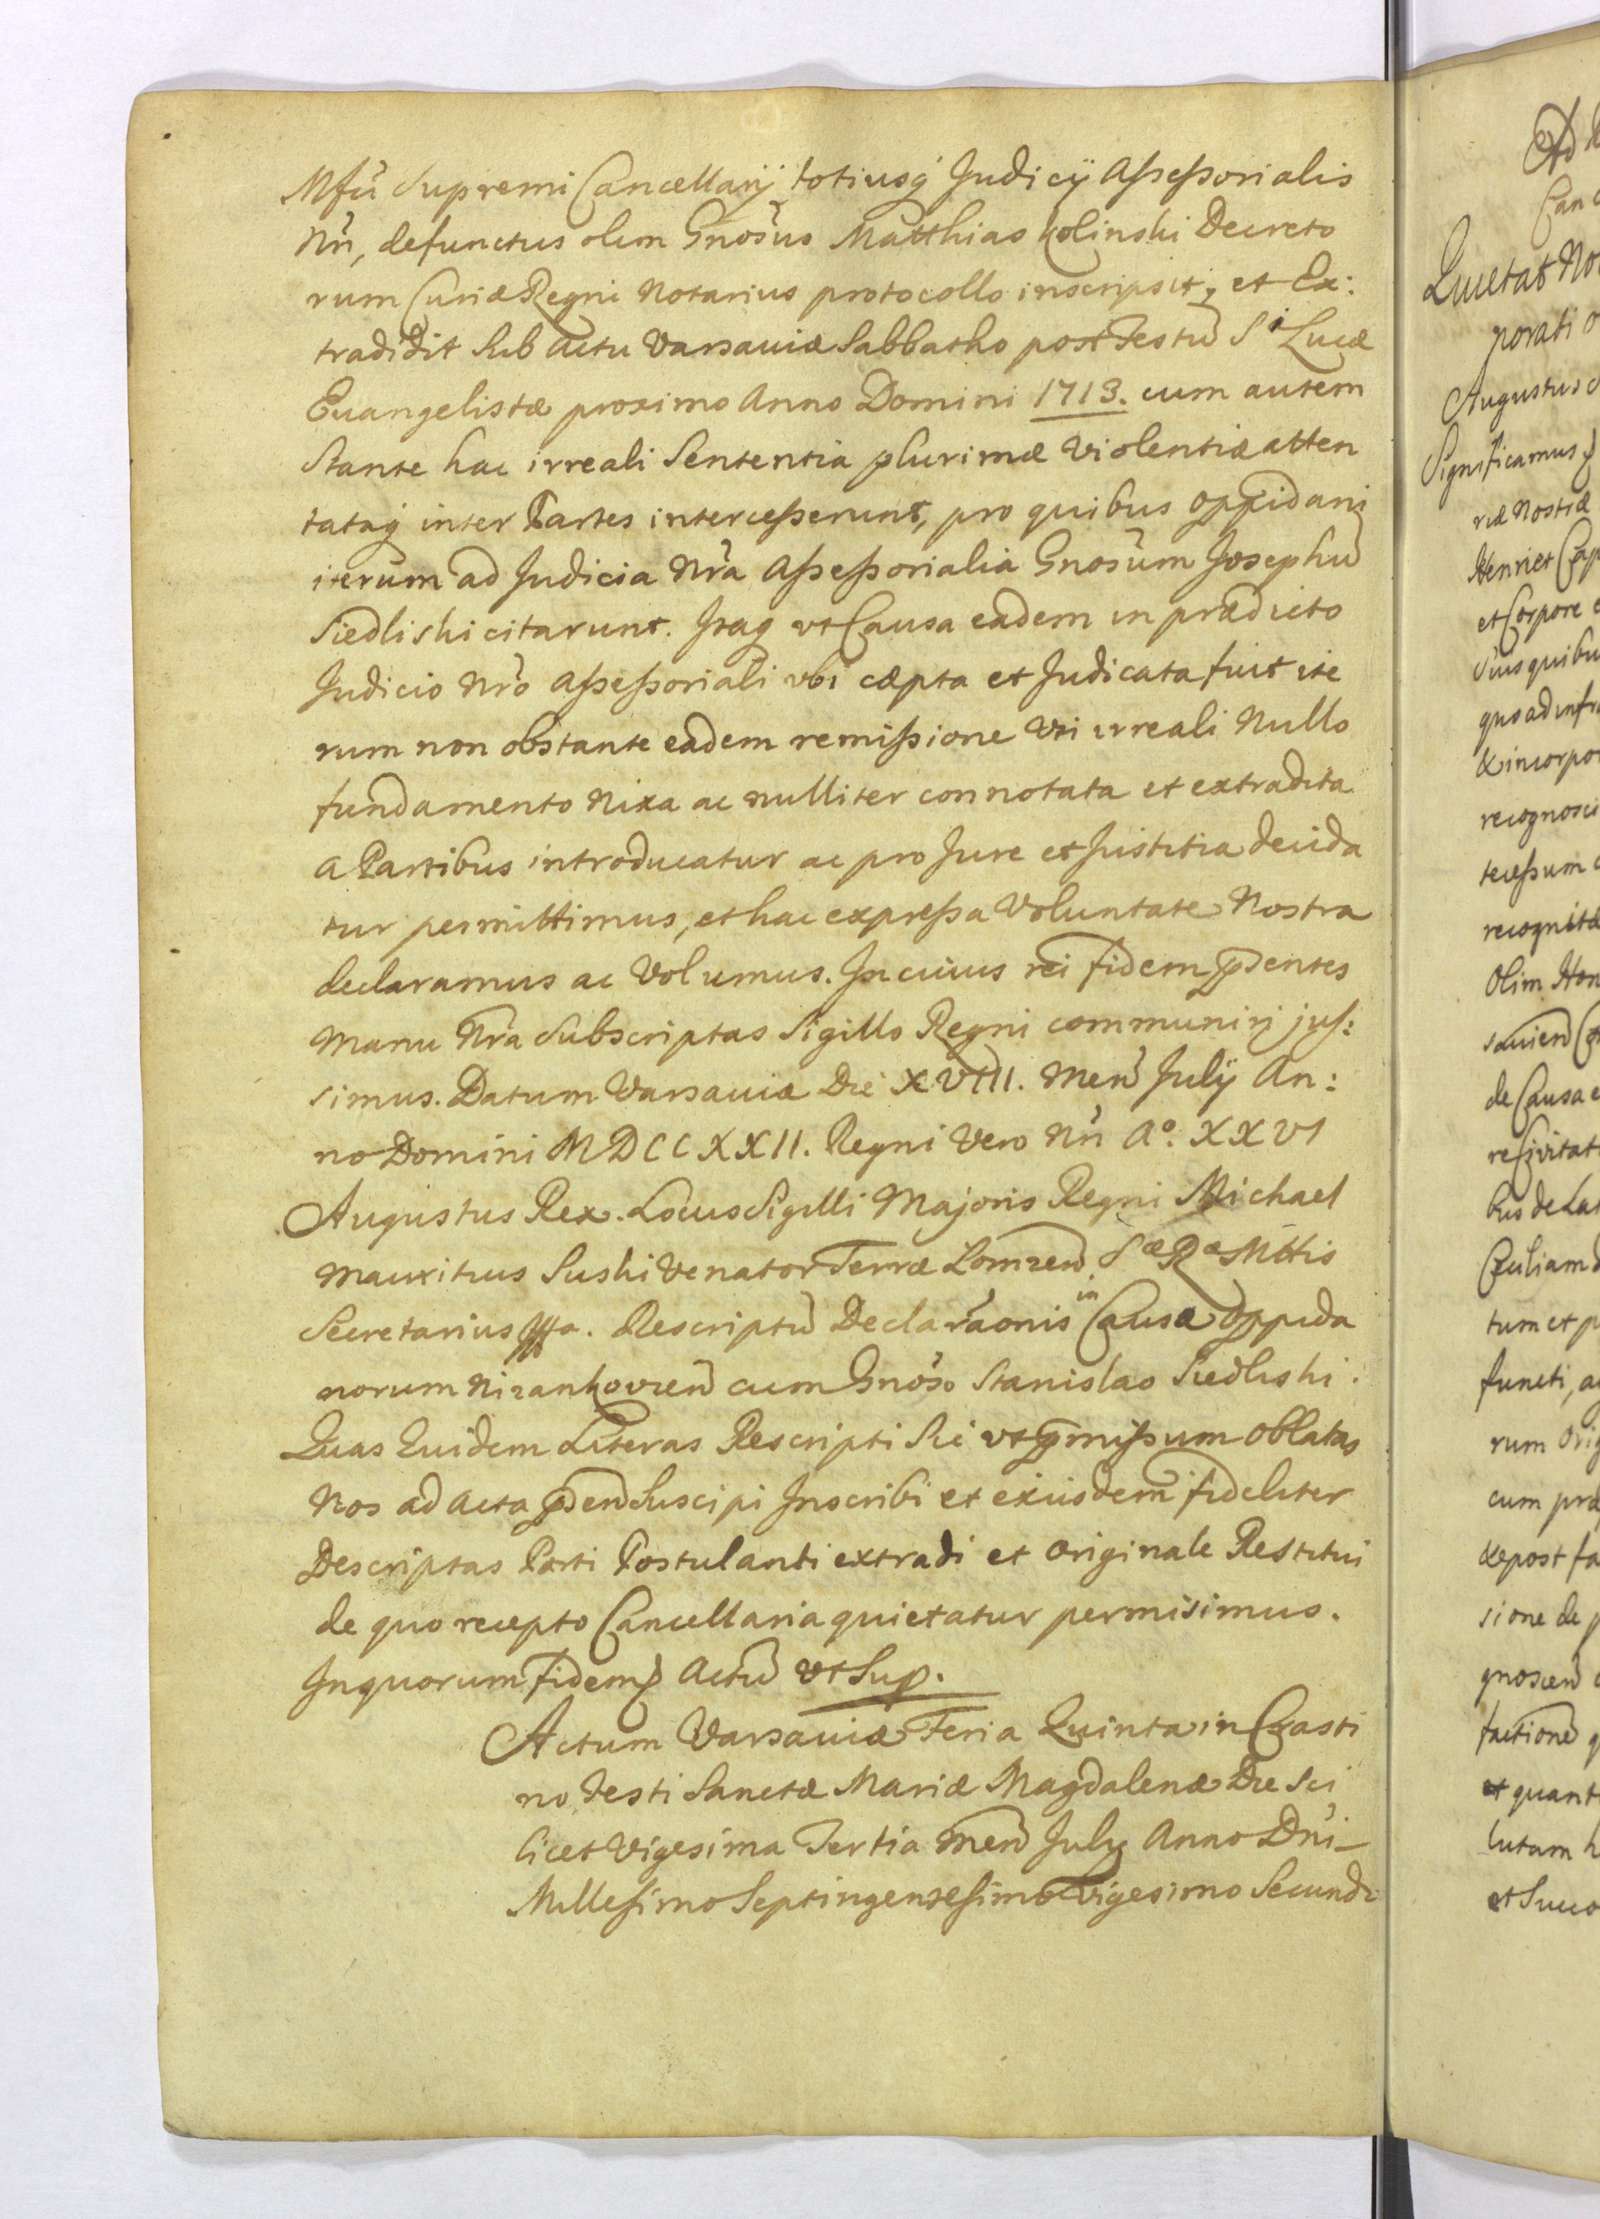 Mfũ Supremi Cancellarÿ totiusq́ Judicÿ Assessorialis
Nrĩ, defunctus olim Gnosũs Matthias Kolinski Decreto
rum Curiæ Regni Notarius protocollo inscripsit, et Ex:
tradidit Sub actu Varsaviæ Sabbatho post Festũ Sⁱ Lucæ
Euangelistæ proximo Anno Domini 1713. cum autem
Stante hac irreali Sententia plurimæ Violentiæ atten
tataq́ inter Partes intercesserunt, pro quibus oppidani
iterum ad Judicia Nrã Assessorialia Gnosũm Josephũ
Siedliski citarunt. Itaq vt Causa eadem in prædicto
Judicio Nrõ Assessoriali vbi cæpta et Judicata fuit ite
rum non obstante eadem remissione Vti irreali Nullo
fundamento Nixa ac nulliter connotata et extradita
a Partibus introducatur ac pro Jure et Justitia decida
tur permittimus, et hac expressa Voluntate Nostra
declaramus ac Volumus. In cuius rei fidem p̃sentes
Manu Nrã Subscriptas Sigillo Regni communirj jus:
simus. Datum Varsaviæ Die XVIII. Menˢ Julÿ An:
no Domini MDCCXXII. Regni Vero Nrĩ Aº. XXVI
Augustus Rex. Locus Sigilli Majoris Regni Michael
Mauritius Suski Venator Terræ Lomzen. Sæ Ræ Mttis
Secretarius mp. Rescriptũ Declarãonis in Causa Oppida
norum Nizankovien cum Gnosõ Stanislao Siedliski.
Quas Quidem Literas Rescripti Sic vt p̃missum Oblatas
Nos ad Acta p̃sen Suscipi Inscribi et exiisdem fideliter
Descriptas Parti Postulanti extradi et Originale Restitui
de quo recepto Cancellaria quietatur permisimus.
In quorum fidem Actũ vt Sup.
Actum Varsaviæ Feria Quinta in Crasti
no Festi Sanctæ Mariæ Magdalenæ Die Sci
licet Vigesima Tertia Men July Anno Dnĩ
Millesimo Septingentesimo Vigesimo Secundo
Can
Quietat No
porati o
Augustus
Significamus
riæ Nostræ
Henriet Cap
et Corpore
Suis quibu
quo ad infra
& incorpor
recognosci
tecessum
recognitæ
Olim Hon
de Causa e
re Civitat
bus de La
tum et p
functi, ac
rum Orig
cum præ
& post fa
sione de p
gnoscen
factione q
et quant
lutam h
et Succo